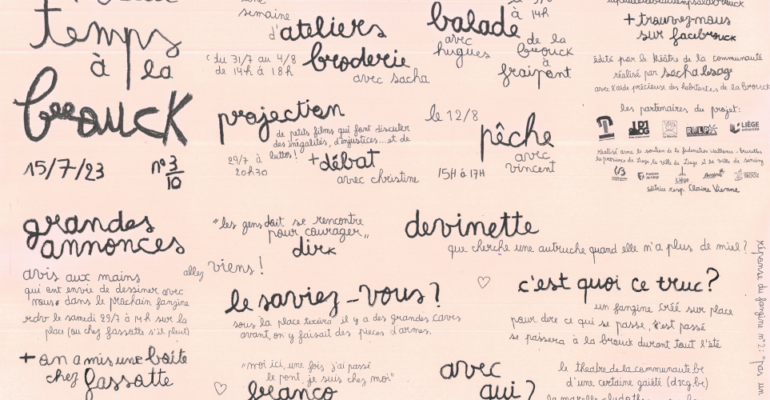 temps
à la
brouck
15/7/23 n° 3/10
semaine
d'ateliers
broderie
(du 31/7 au 4/8
de 14h à 18h
avec sacha
projection
de petits films qui font discuter
des inégalités, d'injustices... et de
luttes!
29/7 à
20h30
+ débat
avec christine
à 14h
balade
avec
hugues
de la
brouck
à
fraipont
le 12/8
pêche
avec
vincent
15H à 17H
+ trouvez-nous
sur facebrouck
édité par le théâtre de la communauté
réalisé par
avec l'aide précieuse des habitantes de la brouck
les partenaires du projet:
LIÈGE
réalisé avec le soutien de la fédération wallonie-bruxelles
la province de liège, la ville de liège et la ville de seraing
éditrice resp. Claire Vienne
grandes
annonces
avis aux mains
qui ont envie de dessiner avec
nous dans le prochain fanzine
rdv le samedi 29/7 à 14h sur la
place (ou chez fassotte s'il pleut)
+ on a mis une boîte
chez fassotte
"les gens doit se rencontre
pour courager"
dirk
allez viens!
le saviez-vous?
sous la place il y a des grandes caves
avant, on y faisait des pièces d'armes.
"moi ici, une fois j'ai passé
le pont, je suis chez moi"
franco
devinette
que cherche une autruche quand elle n'a plus de miel?
c'est quoi ce truc?
un fanzine créé sur place
pour dire ce qui se passe, s'est passé
se passera à la brouck durant tout l'été
avec
qui?
le théâtre de la communauté.be
d'une certaine gaieté (dcg.be)
réponse du fanzine n°2: "pas un